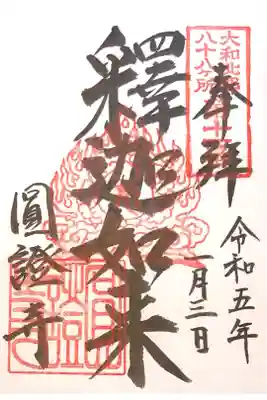 大和北部
八十八ヶ所
奉拜
令和五年
一月三日
釋迦如来
圓證寺